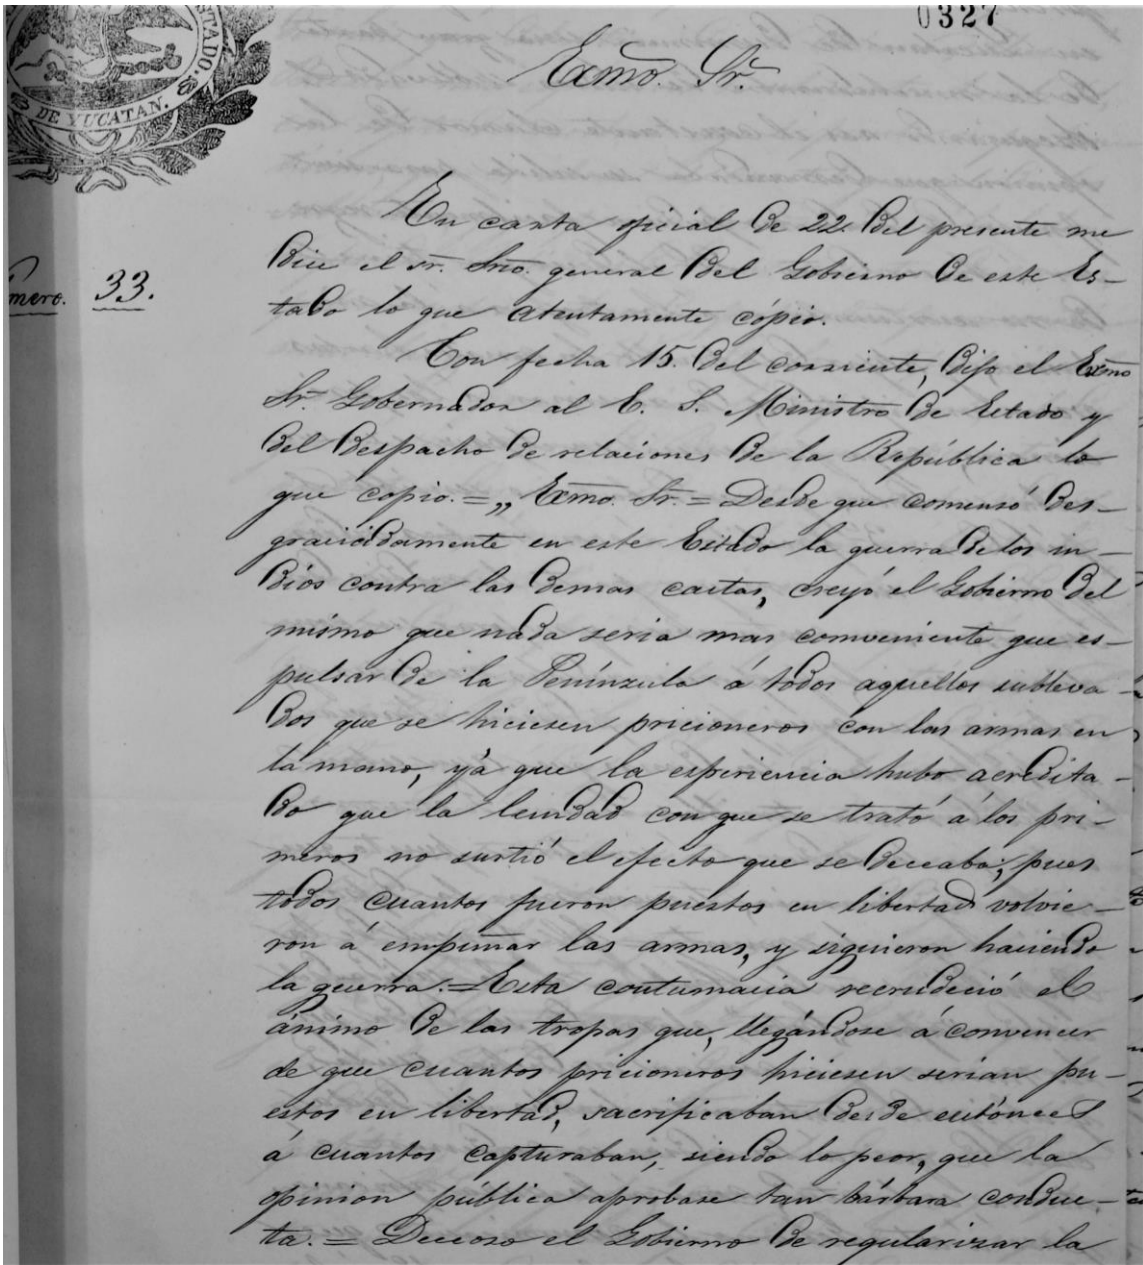 0327
STADO.
DE YUCATAN.
Exmo. Sr.
mero. 33.
En carta oficial de 22 del presente me
dice el sr. Srio. general del Gobierno de este Es-
tado lo que atentamente cópio.
Con fecha 15. del corriente, dijo el Exmo
Sr. Gobernador al E. S. Ministro de Estado y
del Despacho de relaciones de la República lo
que copio. = „ Exmo. Sr. = Desde que comensó des-
graciadamente en este Estado la guerra de los in-
dios contra las demas castas, creyó el Gobierno del
mismo que nada seria mas conveniente que es-
pulsar de la Penínzula á todos aquellos subleva-
dos que se hiciesen pricioneros con las armas en
la mano, yá que la esperiencia hubo acredita-
do que la lenidad con que se trató á los pri-
meros no surtió el efecto que se deceaba; pues
todos cuantos fueron puestos en libertad volvie-
ron á empuñar las armas, y siguieron haciendo
la guerra. = Esta contumacia recrudeció el
ánimo de las tropas que, llegándose á convencer
de que cuantos pricioneros hiciesen serian pu-
estos en libertad, sacrificaban desde entónces
á cuantos capturaban, siendo lo peor, que la
opinion pública aprobase tan bárbara conduc-
ta. = Deceoso el Gobierno de regularizar la